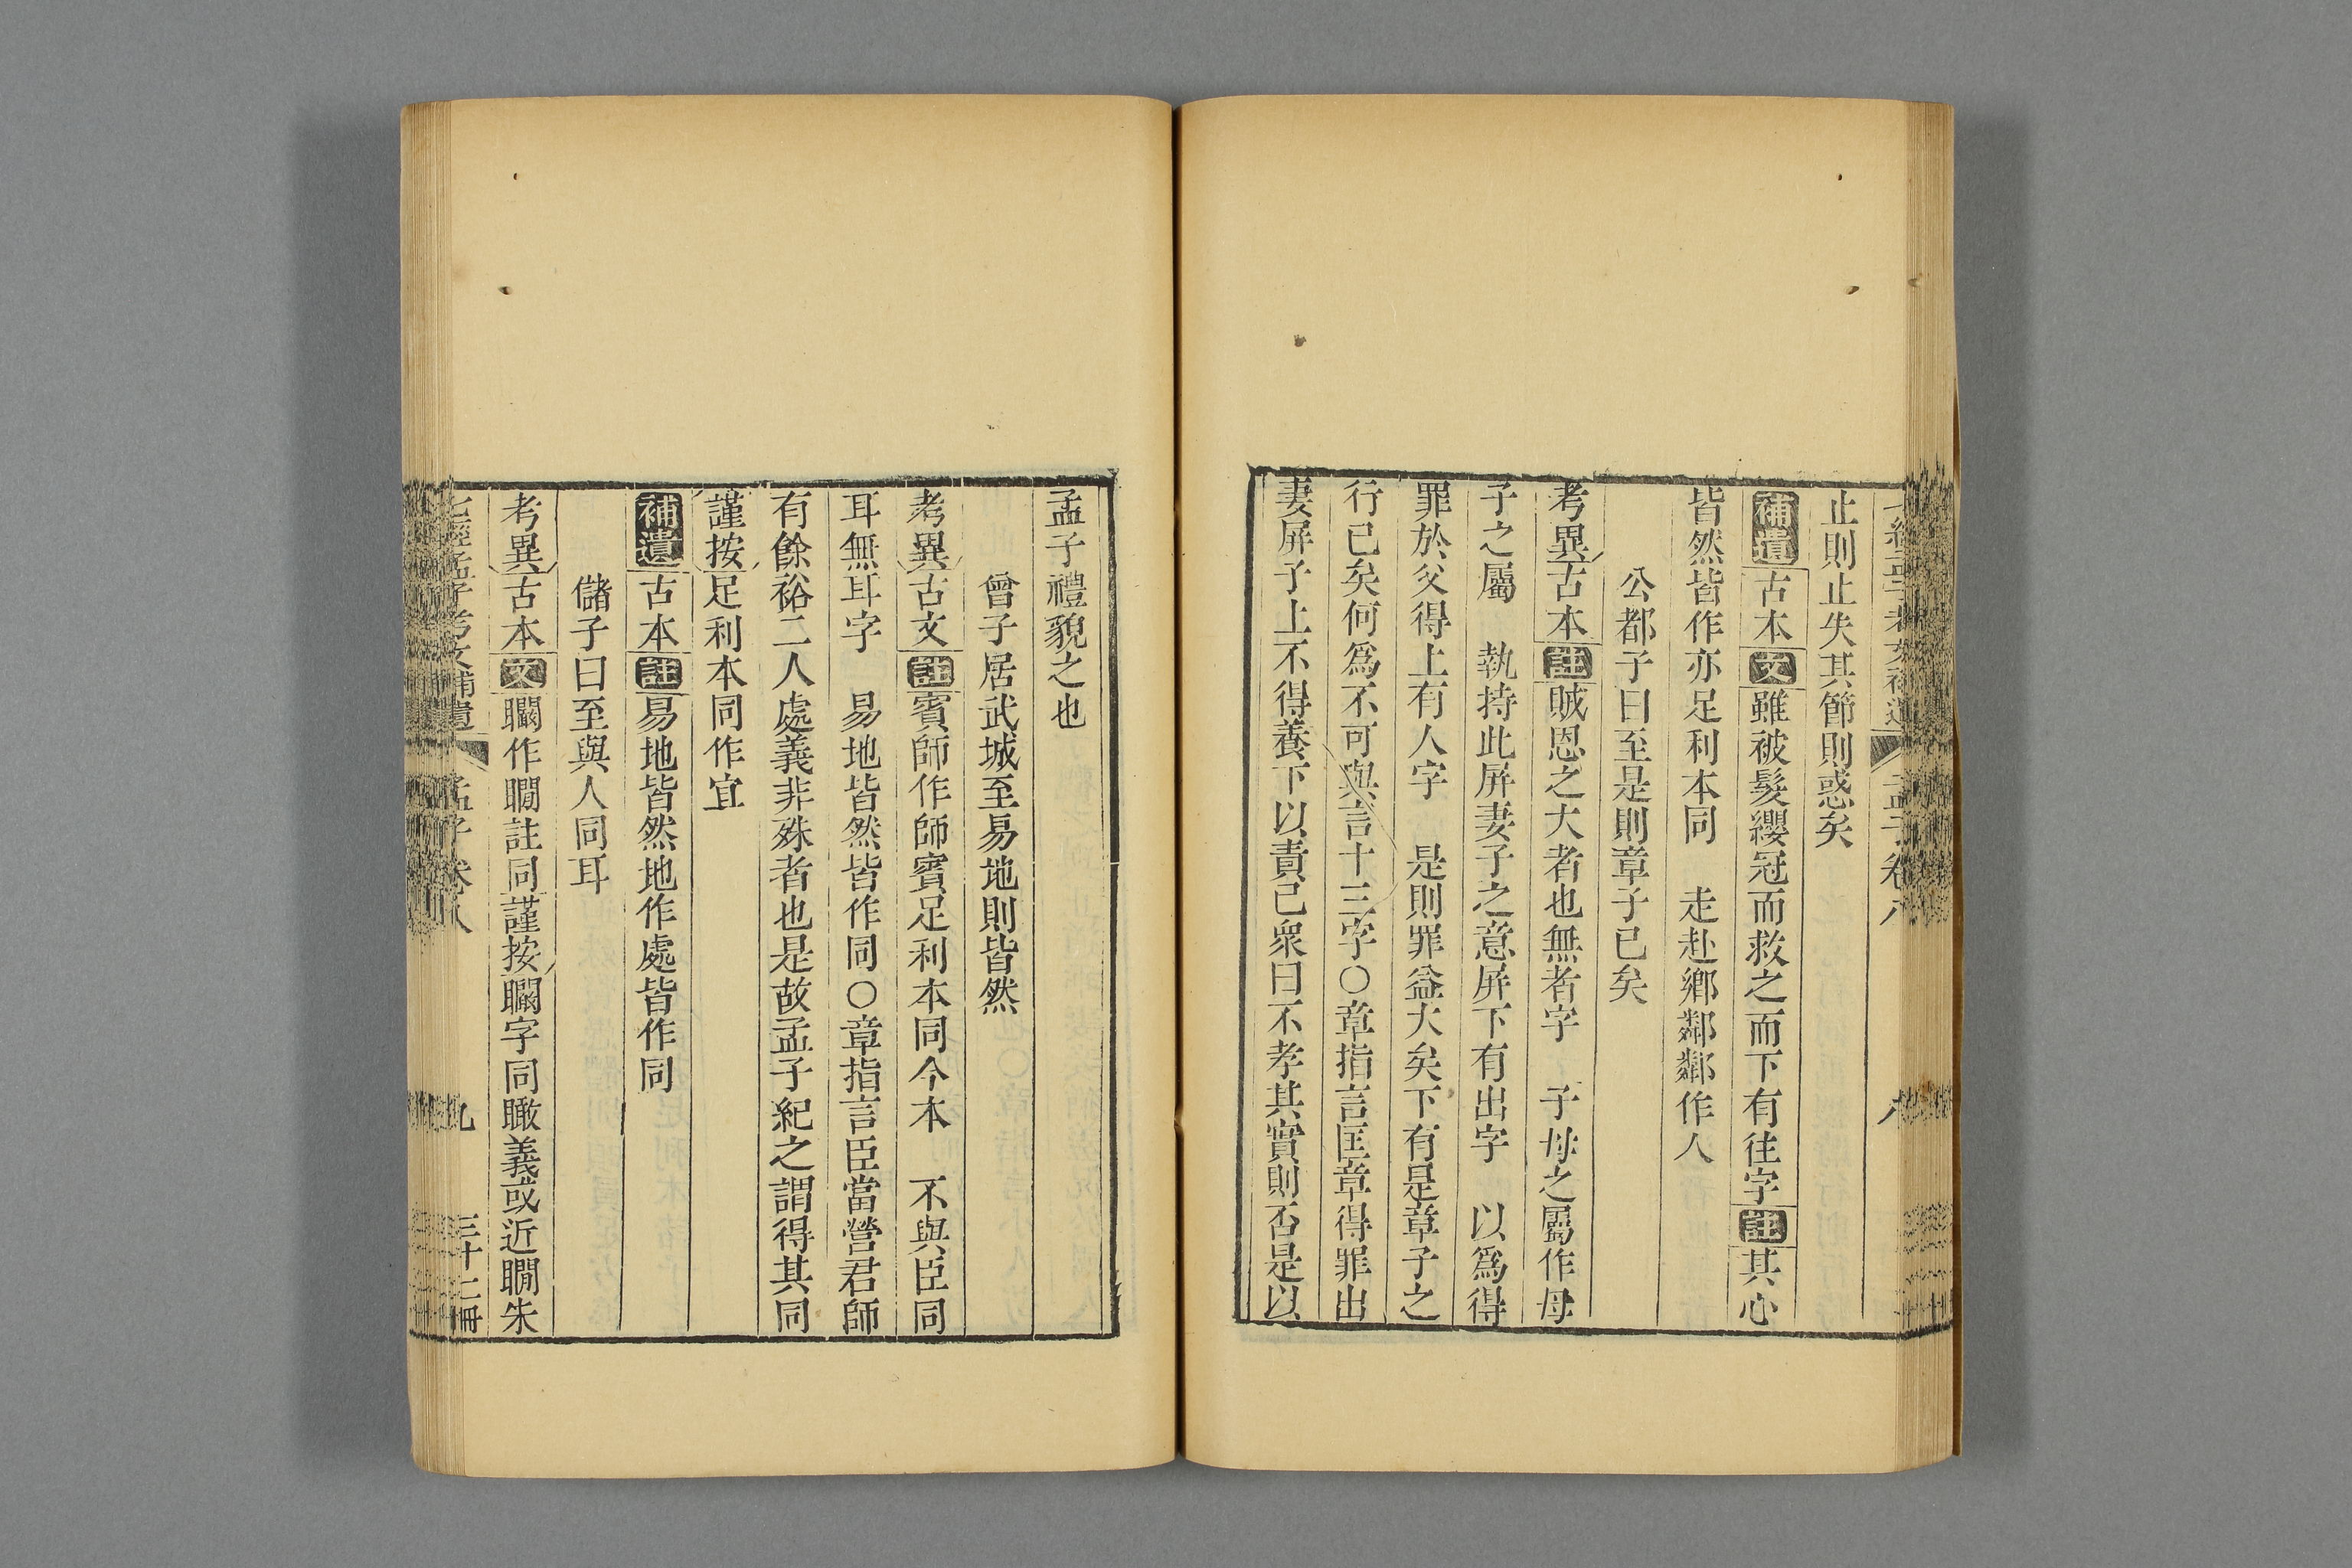 止則止失其節則惑矣
補遺古本文雖被髮纓冠而救之而下有往字註其心
皆然皆作亦足利本同　走赴鄉鄰鄰作人
公都子曰至是則章子已矣
考異古本註賊恩之大者也無者字　子母之屬作母
子之屬　執持此屏妻子之意屏下有出字　以爲得
罪於父得上有人字　是則罪益大矣下有是章子之
行已矣何爲不可與言十三字○章指言匡章得罪出
妻屏子上不得養下以責己衆曰不孝其實則否是以
孟子禮貌之也
曾子居武城至易地則皆然
考異古文註賓師作師賓足利本同今本　不與臣同
耳無耳字　易地皆然皆作同○章指言臣當營君師
有餘裕二人處義非殊者也是故孟子紀之謂得其同
謹按足利本同作宜
補遺古本註易地皆然地作處皆作同
儲子曰至與人同耳
考異古本文矙作瞯註同謹按矙字同瞰義或近瞯朱
七經孟子考文補遺　孟子卷八　九　三十二冊